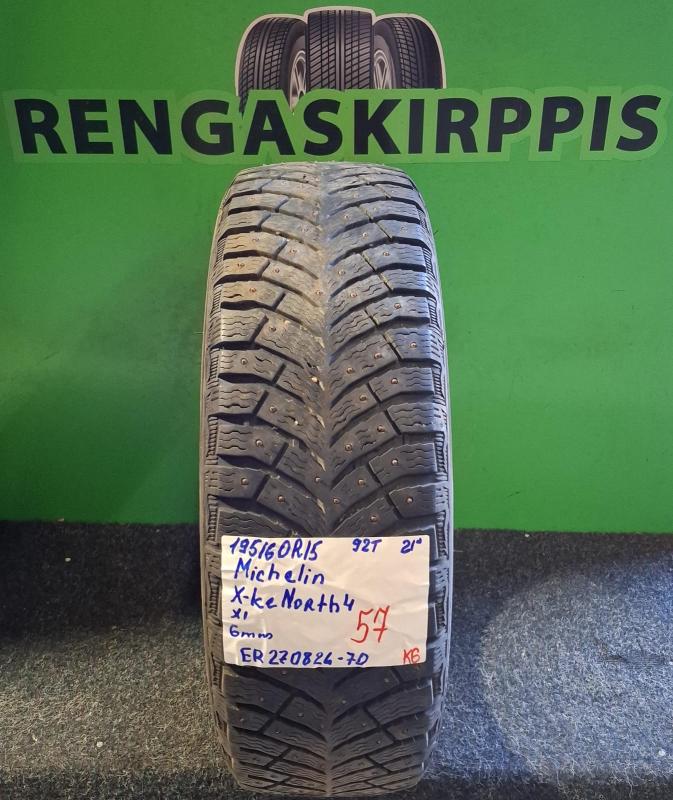 RENGASKIRPPIS
195/60R15 92T 21"
Michelin
X-Ice North 4
x1 57
6mm
ER270824-70 K6